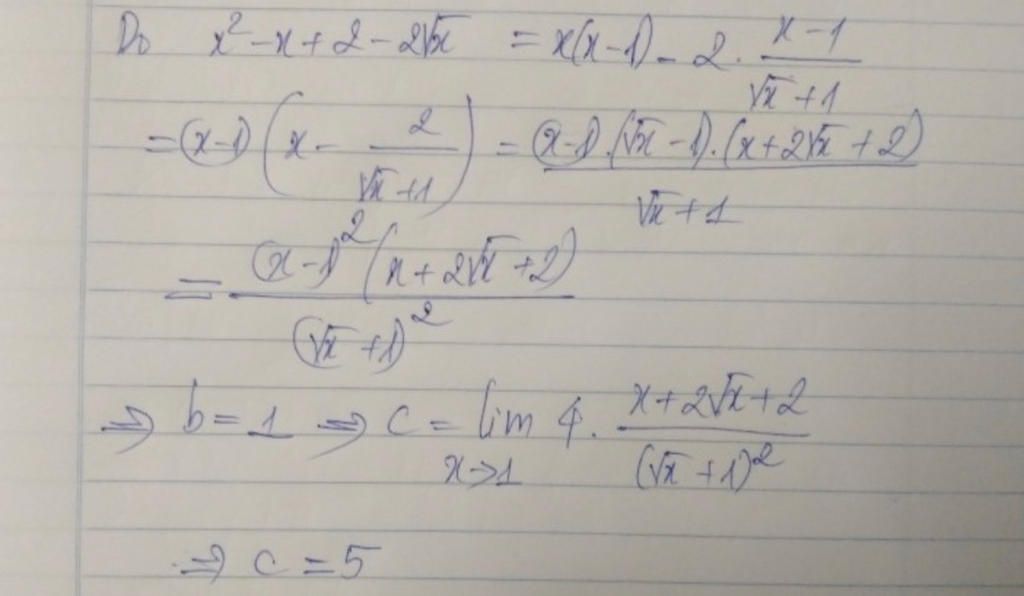 Do x² - x + 2 - 2√x = x(x-1) - 2 . (x-1)/(√x+1)
= (x-1) (x - 2/(√x+1)) = ((x-1).(√x-1).(x+2√x+2))/(√x+1)
= ((x-1)²(x+2√x+2))/((√x+1)²)
⇒ b = 1 ⇒ c = lim x→1 4. (x+2√x+2)/((√x+1)²)
⇒ c = 5